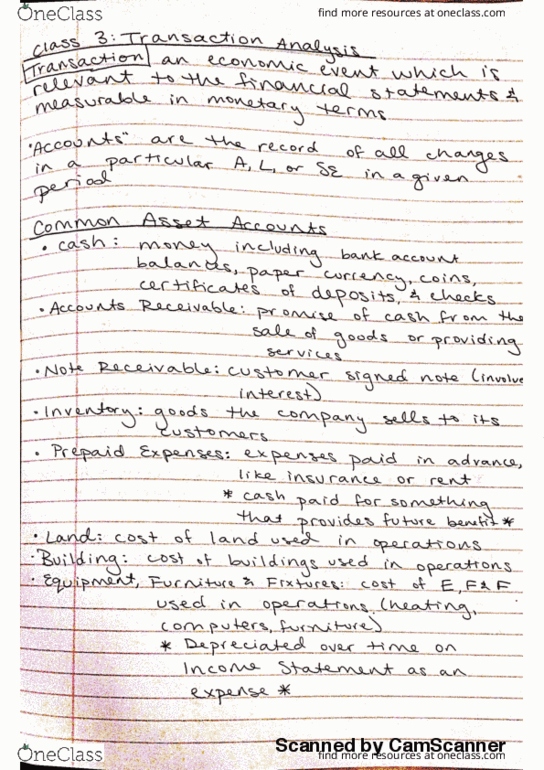 OneClass
find more resources at oneclass.com
Class 3: Transaction Analysis
Transaction an economic event which is
relevant to the financial statements &
measurable in monetary terms
"Accounts" are the record of all changes
in a particular A, L, or SE in a given
period
Common Asset Accounts
• cash: money including bank account
balances, paper currency, coins,
certificates of deposits, & checks
• Accounts Receivable: promise of cash from the
sale of goods or providing
services
• Note Receivable: customer signed note (involve
interest)
• Inventory: goods the company sells to its
customers
• Prepaid Expenses: expenses paid in advance,
like insurance or rent
* cash paid for something
that provides future benefit *
• Land: cost of land used in operations
• Building: cost of buildings used in operations
• Equipment, Furniture & Fixtures: cost of E, F & F
used in operations (heating,
computers, furniture)
* Depreciated over time on
Income Statement as an
expense *
Scanned by CamScanner
OneClass
find more resources at oneclass.com